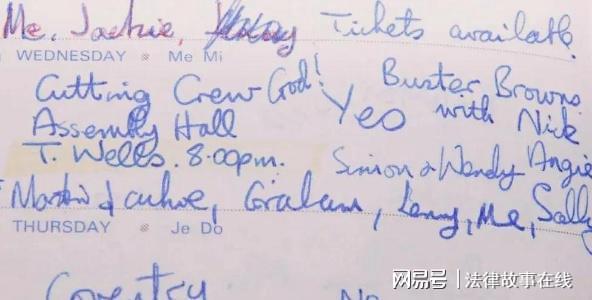 Me, Jackie, Tickets available
WEDNESDAY Me Mi
Cutting Crew God! Buster Browns
Assembly Hall Yes with Nick
T. Wells. 8.00pm. Simon & Wendy Angie
Martin & Jackie, Graham, Lenny, Me, Sally
THURSDAY Je Do
Coventry No
网易号 法律故事在线